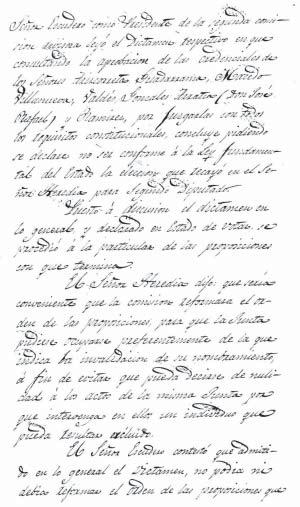 Señor Escudero como Presidente de la segunda comi-
sion decima leyó el Dictamen respectivo en que
consultando la aprobacion de las credenciales de
los Señores
Villanueva, Valdés, Gonzales (Don José
Rafael) y Ramirez, por juzgarlas con todos
los requisitos constitucionales, concluye pidiendo
se declare no ser conforme á la Ley fundamen-
tal del Estado la eleccion que recayo en el Se-
ñor Heredia para Segundo Diputado.
Puesto á discusion el dictamen en
lo general, y declarado en estado de votar, se
procedió á la particular de las proposiciones
con que termina.
El Señor Heredia dijo: que seria
conveniente que la comision reformara el or-
den de las proposiciones, para que la Junta
pudiese ocuparse preferentemente de la que
indica la invalidacion de su nombramiento,
á fin de evitar que pueda decirse de nuli-
dad á los actos de la misma Junta por
que intervenga en ellos un individuo que
pueda resultar excluido.
El Señor contestó que admiti-
do en lo general el Dictamen, no podia ni
debia reformar el orden de las proposiciones que